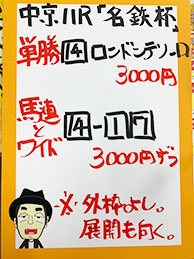 中京11R「名鉄杯」
単勝14ロンドンテソーロ
3000円
馬連とワイド
14-17
3000円ずつ
外枠よし。
展開も向く。